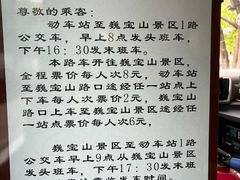 尊敬的乘客：
动车站至巍宝山景区1路
公交车，早上8点发头班车，
下午16：30发末班车。
本路车开往巍宝山景区，
全程票价每人次8元，动车站
至巍宝山路口途经任一站点
每人次票价2元，巍宝山
路口上车至景区途经任
一站点票价每人次6元，
巍宝山景区至动车站1路
公交车早上9点从巍宝山景区
发头班车，下午17：30发